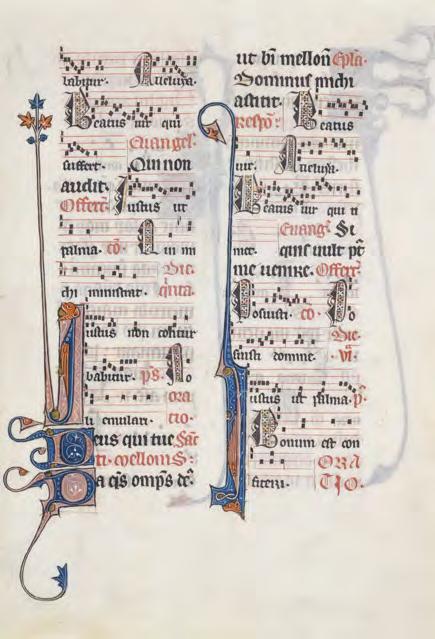 babitur. Alleluya.
Beatus uir qui
Euangel'
suffert. Qui non
audit. Iustus ut
Offert'
palma. co. Qui mi
Die
chi ministrat. quinta.
Iustus non conturbabitur. ps. No
ora
li emulari. tio.
Deus qui tue Sancti. mellonis:
Da qs omps ds.
ut bi mellon Epla.
Dominus michi
astitit. Beatus
Respo:
uir. Alleluya.
Beatus uir qui ti
Euang' Si
met. quis uult pt
me uenire. Offert'
Posuisti. co. Po
Die
suisti domine. .vi.
Iustus ut palma. p.
Bonum est con
ORA
fiteri. TIO.